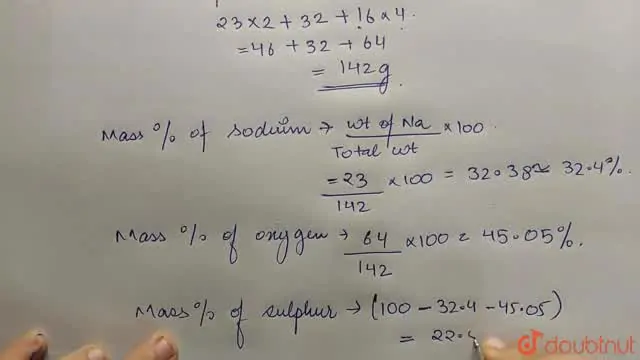 23×2+32+16×4
=46+32+64
=142g
Mass % of sodium → wt of Na/Total wt ×100
=23/142 ×100 = 32.38≃32.4%.
Mass % of oxygen → 64/142 ×100 = 45.05%.
Mass % of sulphur → (100-32.4-45.05)
= 22.
doubtnut